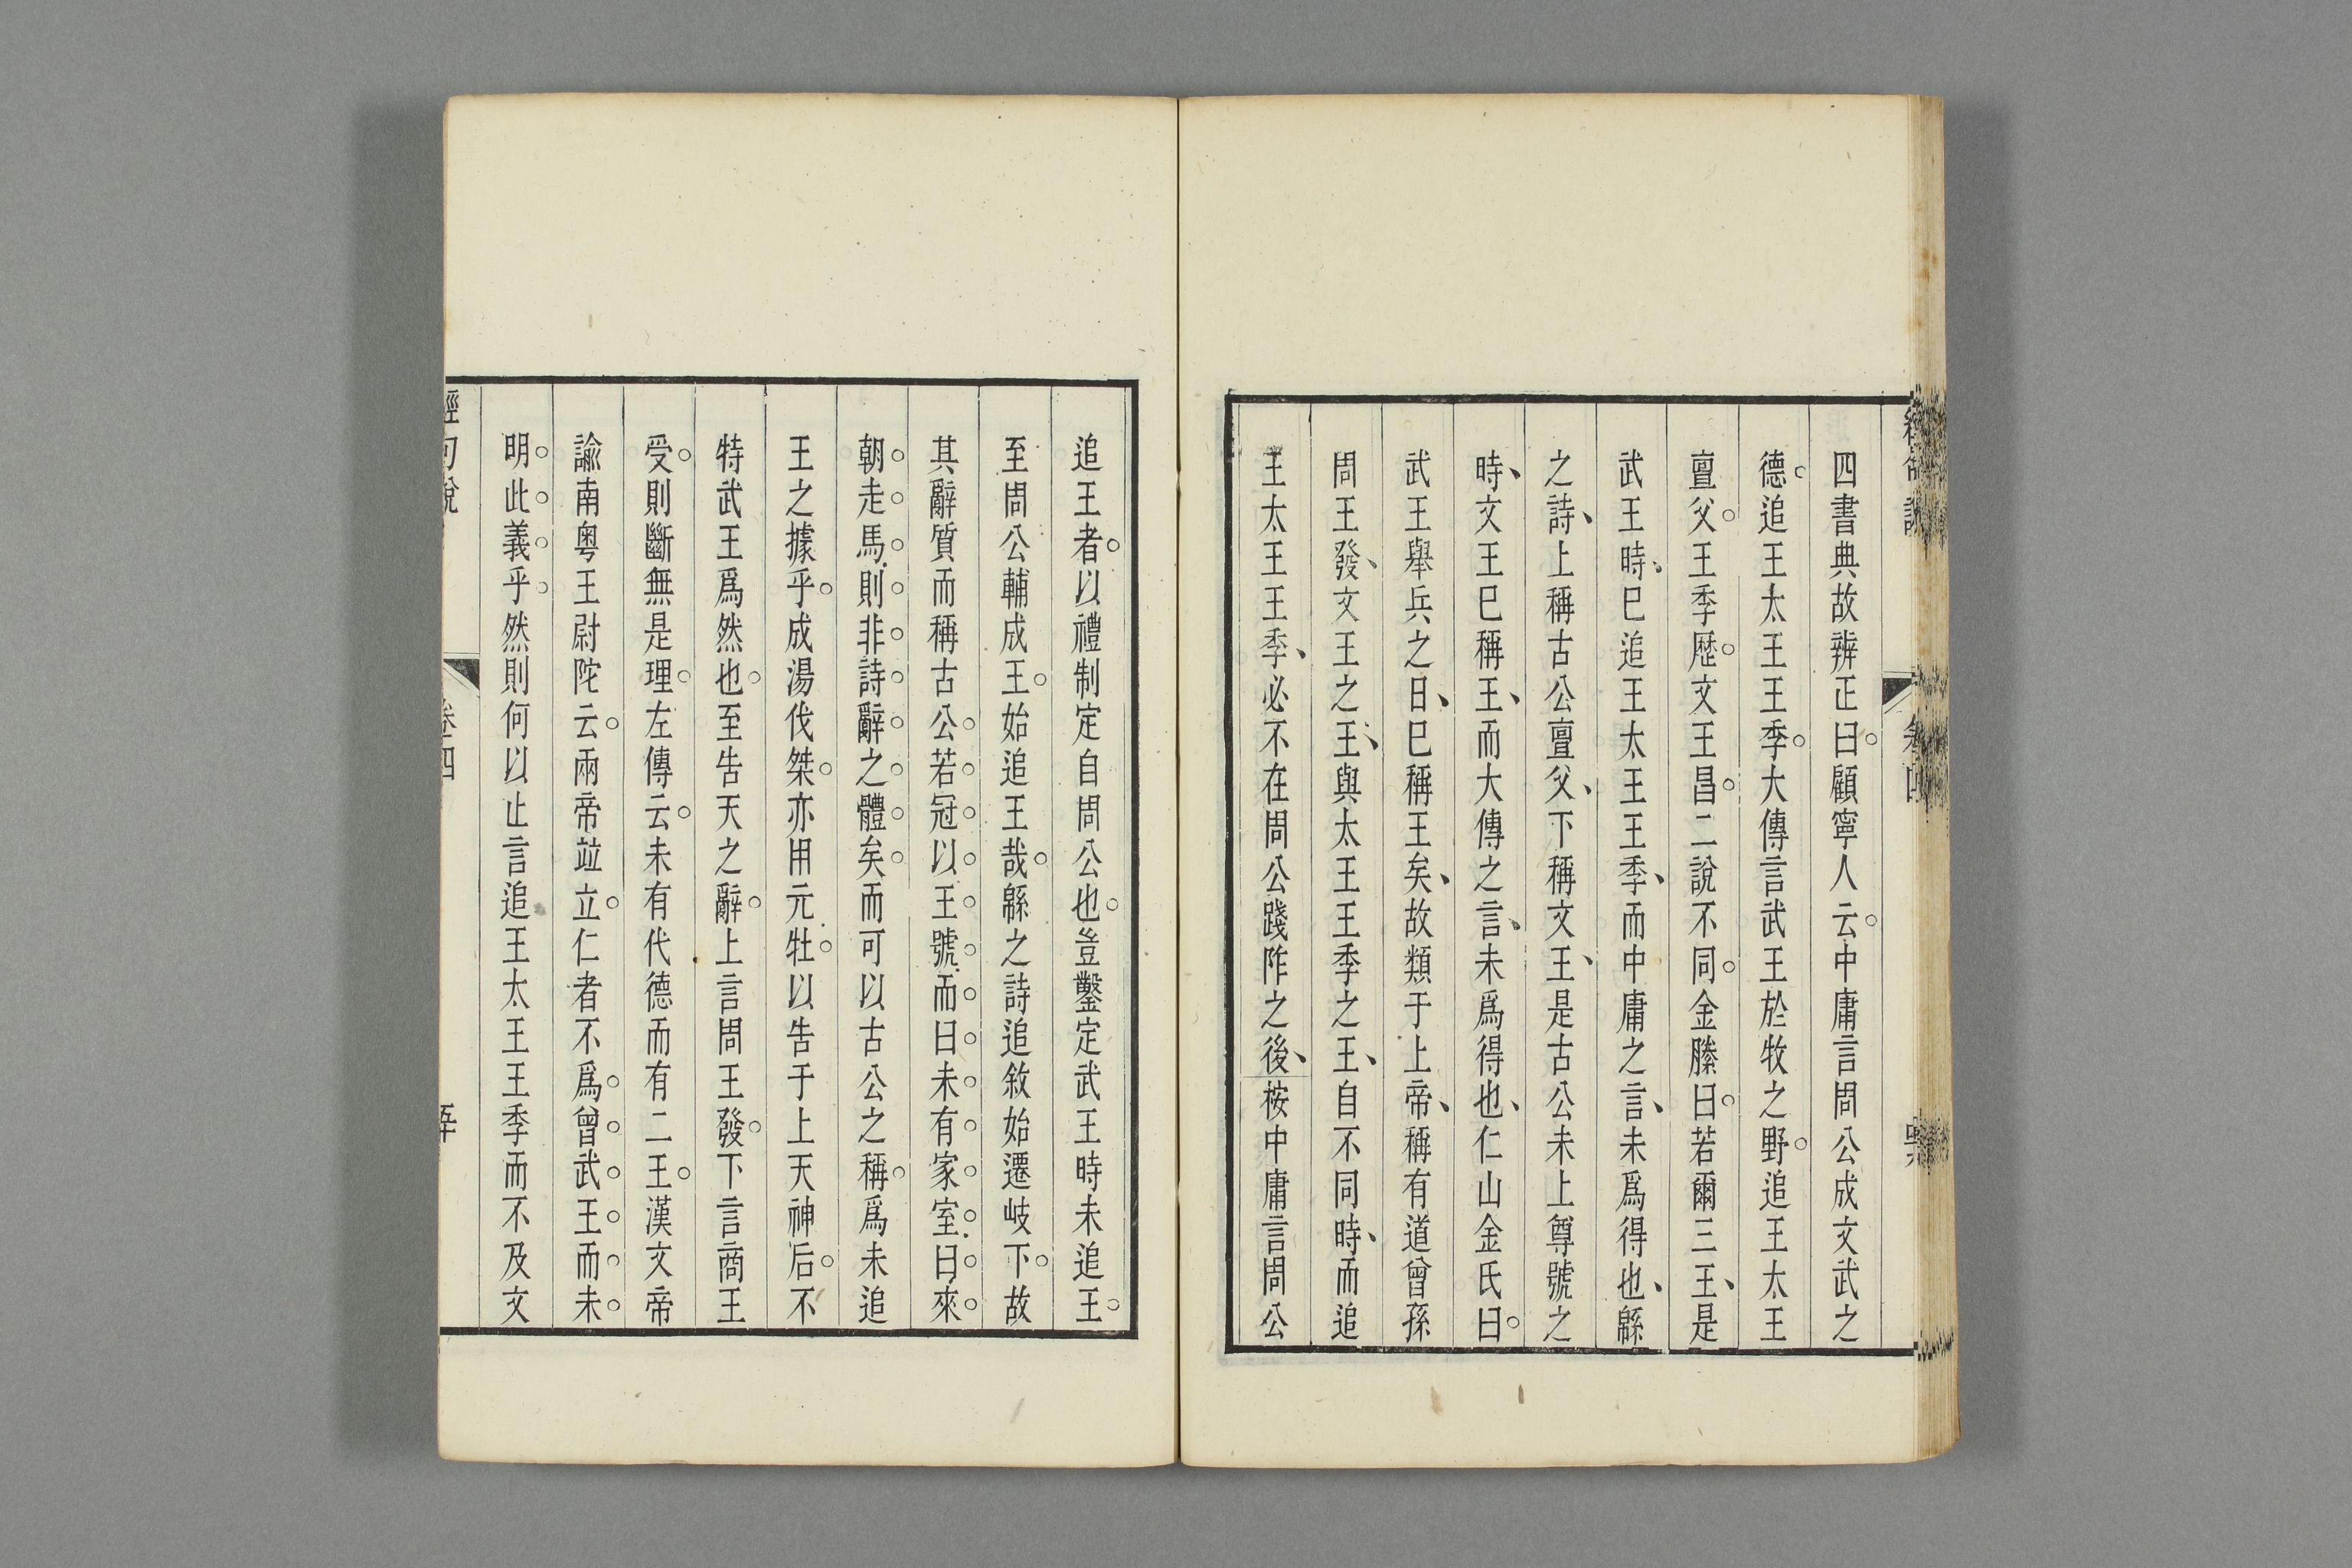 四書典故辨正曰顧寧人云中庸言周公成文武之
德追王太王王季大傳言武王於牧之野追王太王
亶父王季歷文王昌二說不同金縢曰若爾三王是
武王時已追王太王王季而中庸之言未爲得也緜
之詩上稱古公亶父下稱文王是古公未上尊號之
時文王已稱王而大傳之言未爲得也仁山金氏曰
武王舉兵之日已稱王矣故類于上帝稱有道曾孫
周王發文王之王與太王王季之王自不同時而追
王太王王季必不在周公踐阼之後按中庸言周公
追王者以禮制定自周公也豈鑿定武王時未追王
至周公輔成王始追王哉緜之詩追敘始遷岐下故
其辭質而稱古公若冠以王號而曰未有家室曰來
朝走馬則非詩辭之體矣而可以古公之稱爲未追
王之據乎成湯伐桀亦用元牡以告于上天神后不
特武王爲然也至告天之辭上言周王發下言商王
受則斷無是理左傳云未有代德而有二王漢文帝
諭南粵王尉陀云兩帝竝立仁者不爲曾武王而未
明此義乎然則何以止言追王太王王季而不及文
卷四